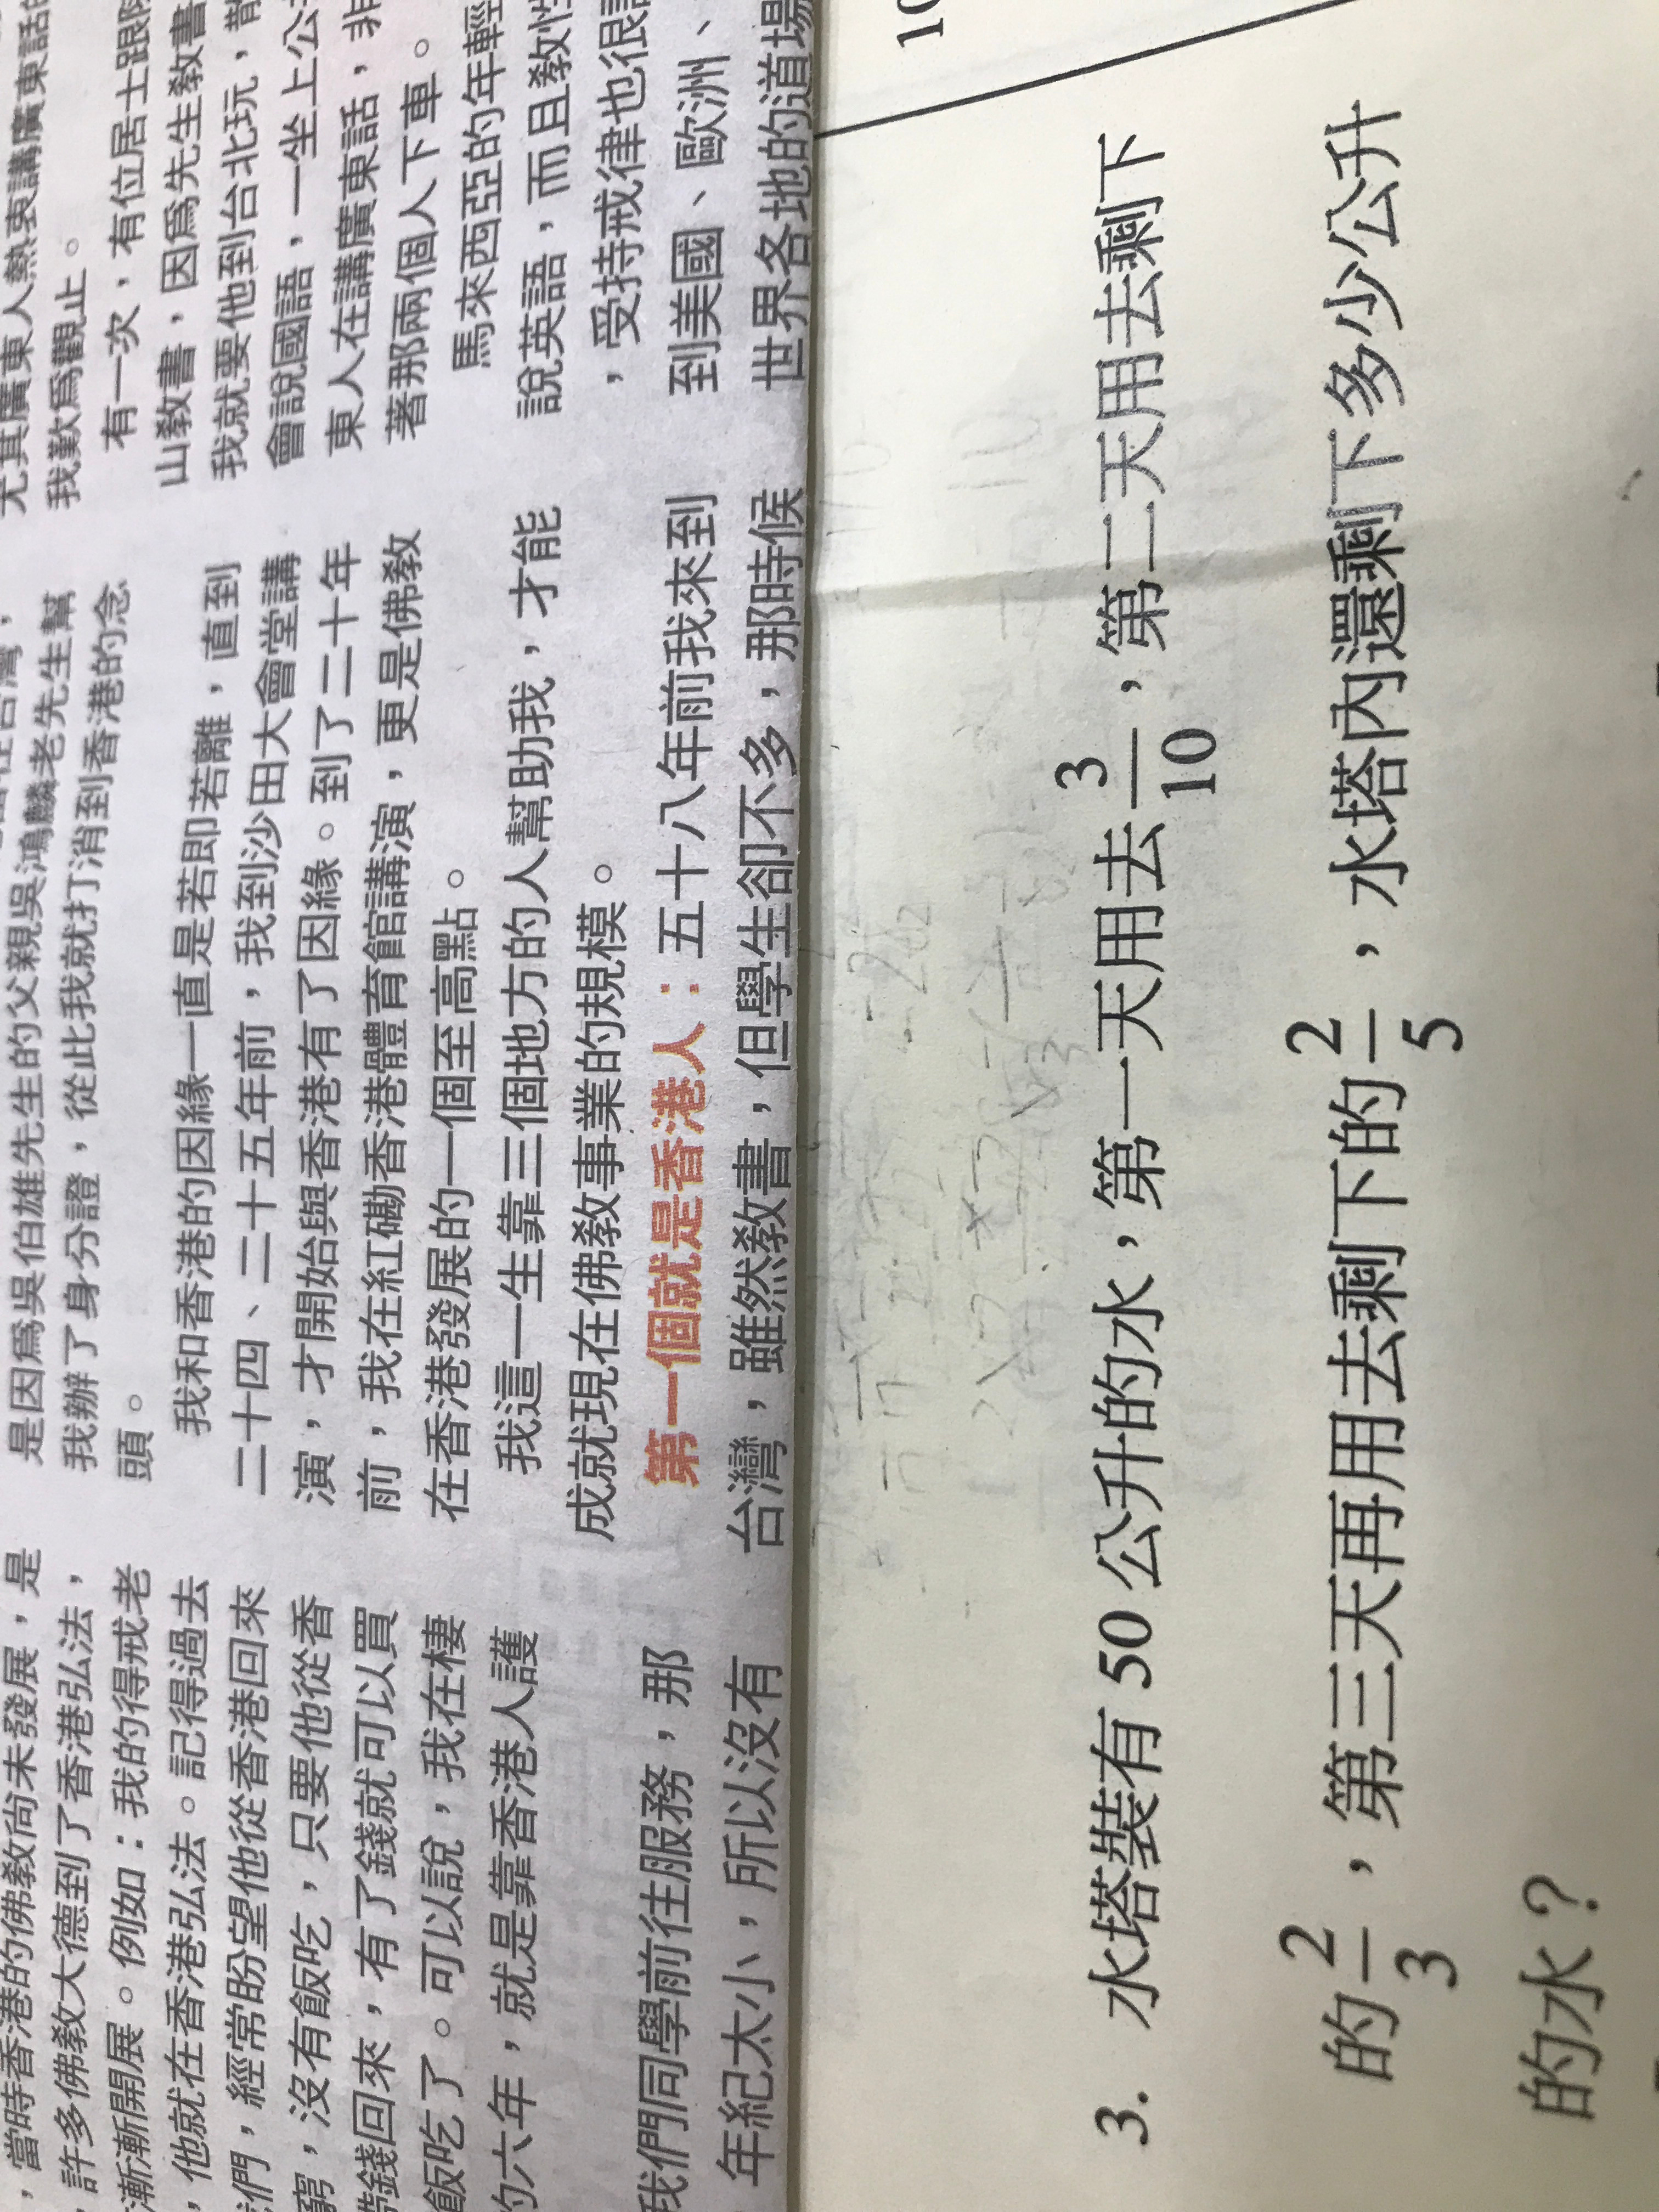 ，當時香港的佛教尚未發展，是
，許多佛教大德到了香港弘法，
漸漸開展。例如：我的得戒老
，他就在香港弘法。記得過去
們，經常盼望他從香港回來
窮，沒有飯吃，只要他從香
帶錢回來，有了錢就可以買
飯吃了。可以說，我在棲
的六年，就是靠香港人護
我們同學前往服務，那
年紀太小，所以沒有
是因爲吳伯雄先生的父親吳鴻麟老先生幫
我辦了身分證，從此我就打消到香港的念
頭。
我和香港的因緣一直是若即若離，直到
二十四、二十五年前，我到沙田大會堂講
演，才開始與香港有了因緣。到了二十年
前，我在紅磡香港體育館講演，更是佛教
在香港發展的一個至高點。
我這一生靠三個地方的人幫助我，才能
成就現在佛教事業的規模。
第一個就是香港人：五十八年前我來到
台灣，雖然教書，但學生卻不多，那時候
尤其廣東人熱衷講廣東話
我歎爲觀止。
有一次，有位居士跟
山教書，因爲先生教書
我就要他到台北玩，散
會說國語，一坐上公
東人在講廣東話，非
著那兩個人下車。
馬來西亞的年輕
說英語，而且教性
，受持戒律也很
到美國、歐洲、
世界各地的道場
10
3. 水塔裝有 50 公升的水，第一天用去3/10，第二天用去剩下
的2/3，第三天再用去剩下的2/5，水塔內還剩下多少公升
的水？